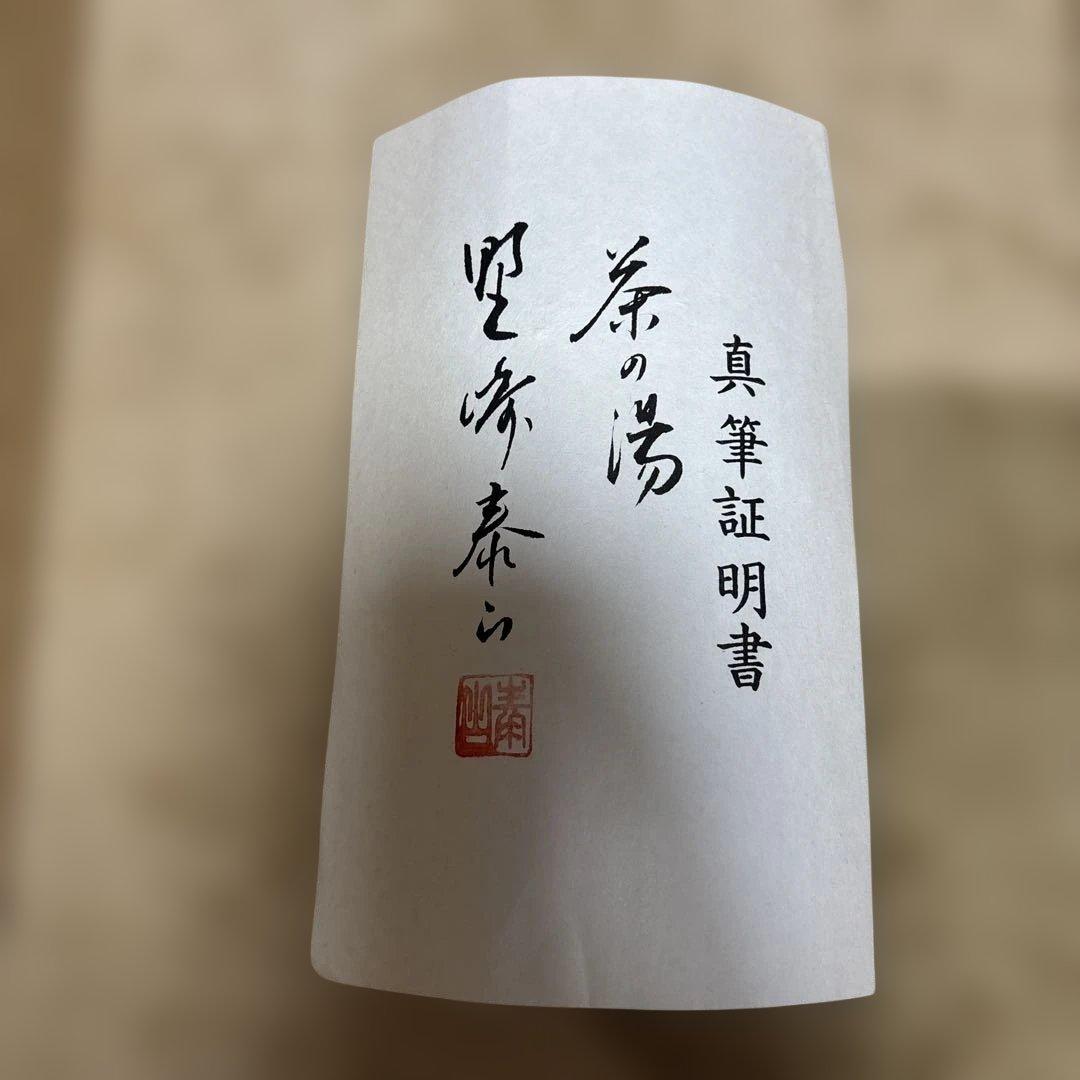 真筆証明書
茶の湯
野崎泰山